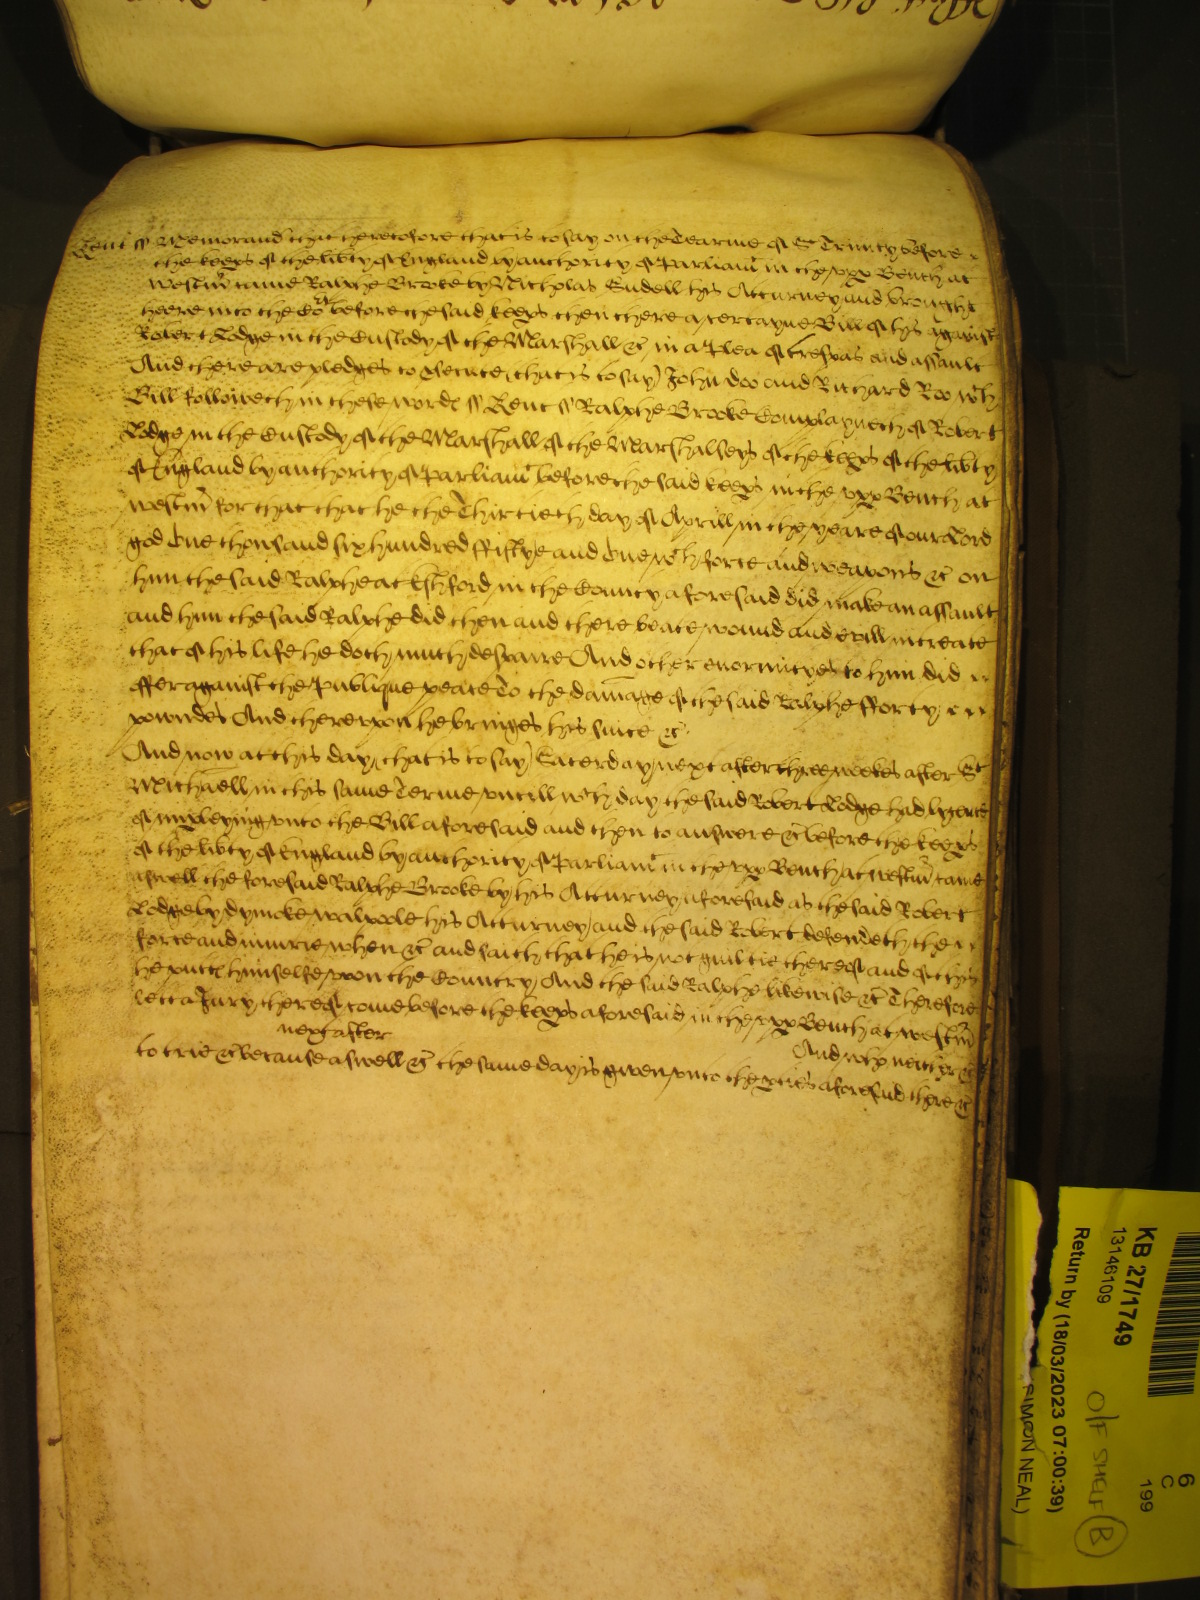 Kent ss Memorand that heretofore that is to say on the Tearme of St Trinity before
the keeps of the libty of England by authority of Parliamt in the upp Bench at
Westmr came Ralphe Brooke by Nicholas Endell his Atturney and brought
heere into the Cort before the said keeps then there a certayne Bill of his against
Robert Lodge in the Custody of the Marshall &c in a Plea of trespas and assault
And there are pledges to psecute (that is to say) John doo and Richard Roo wch
Bill followeth in these words ss Kent ss Ralphe Brooke Complayneth of Robert
Lodge in the Custody of the Marshall of the Marshalseys of the keeps of the libty
of England by authority of Parliamt before the said keeps in the upp Bench at
westmr for that that he the Thirtieth day of Aprill in the yeare of our Lord
god One thousand six hundred ffiftye and One wth force and weapons &c on
him the said Ralphe at Eshford in the County aforesaid did make an assault
and him the said Ralphe did then and there beate wound and evill intreate
that of his life he doth much despaire And other enormityes to him did
offer against the Publique peace To the damage of the said Ralphe fforty
pownds And thereupon he bringes his suite &c
And now at this day (that is to say) Saterday next after three weekes after St
Michaell in this same Terme untill wch day the said Robert Lodge had lycence
of impleying unto the Bill aforesaid and then to answere &c before the keeps
of the libty of England by authority of Parliamt in the upp Bench at westmr came
aswell the foresaid Ralphe Brooke by his Atturney aforesaid as the said Robert
Lodge by dymoke walpole his Atturney and the said Robert defendeth the
force and iniurie when &c and saith that he is not guiltie thereof and of this
he putts himselfe upon the Country And the said Ralphe likewise &c Therefore
lett a Jury thereof come before the keeps aforesaid in the upp Bench at westmr
next after And who neither &c
to trie &c because aswell &c the same day is given unto the pties aforesaid there &c
KB 27/1749
13146109
Return by (18/03/2023 07:00:39)
SIMON NEAL)
O/F SHELF B
6
C
199